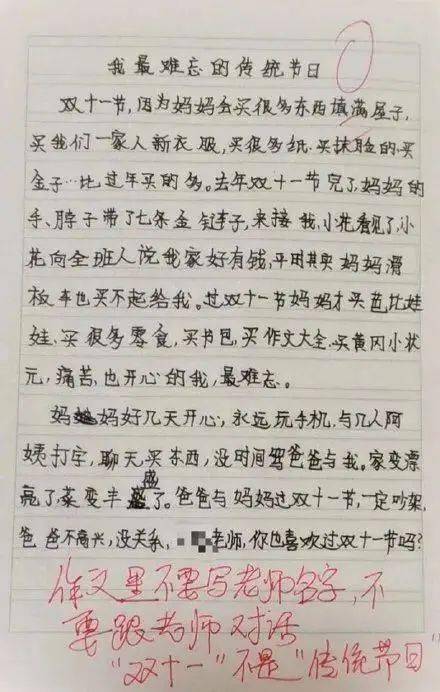 我最难忘的传统节日
双十一节,因为妈妈会买很多东西填满屋子,
买我们一家人新衣服,买很多纸、买抹脸的、买
金子…比过年买的多。去年双十一节完了,妈妈的
手、脖子带了七条金链子,来接我,小花看见了,小
花向全班人说我家好有钱,平田其实妈妈滑
板车也买不起给我。过双十一节妈妈才买芭比娃
娃、买很多零食,买书包,买作文大全、买黄冈小状
元,痛苦,也开心的我,最难忘。
妈妈好几天开心,永远玩手机,与几人阿
姨打字,聊天,买东西,没时间骂爸爸与我。家变漂
亮了,菜变丰盛了。爸爸与妈妈过双十一节,一定吵架,
爸爸不高兴,没关系,老师,你也喜欢过双十一节吗?
作文里不要写老师名字,不
要跟老师对话
"双十一"不是"传统节日"